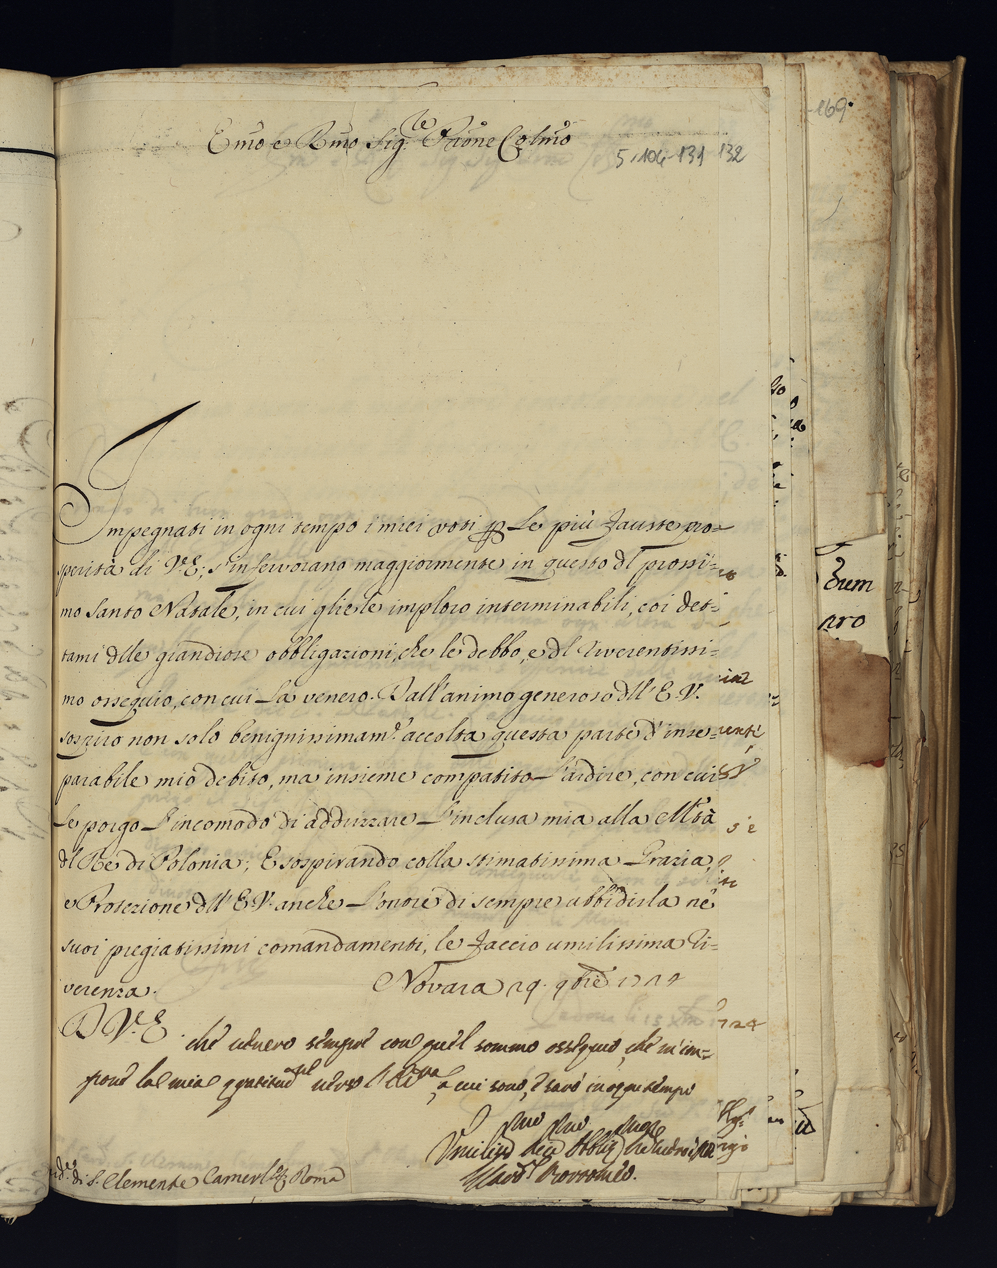 169.
Emo e Rmo Sigre Prone Colmo
5, 104-131 132
Impegnati in ogni tempo i miei voti per Le più fauste pro=
sperità di V.E., s'infervorano maggiormente in questo del prossi=
mo Santo Natale, in cui gliele imploro interminabili, coi det=
tami delle grandiose obbligazioni, che le debbo, e del riverentissi=
mo ossequio, con cui La venero. Dall'animo generoso dell'E.V.
sospiro non solo benignissimam.e accolta questa parte d'inse=
parabile mio debito, ma insieme compatito L'ardire, con cui
Le porgo L'incomodo di addrizzare L'inclusa mia alla Mtà
del Re di Polonia; E sospirando colla stimatissima Grazia,
e Protezione dell'E.V. anche L'onore di sempre ubbidirla ne'
suoi pregiatissimi comandamenti, le faccio umilissima ri=
verenza.
Novara 29. 9bre 1724
D V.E.
che venero sempre con quel sommo ossequio, che m'im=
pone la mia gratitud.e verso l'E.V., a cui sono, e sarò in ogni tempo
Borromeo.
di S. Clemente Camerl.go Roma
724
zum
nro